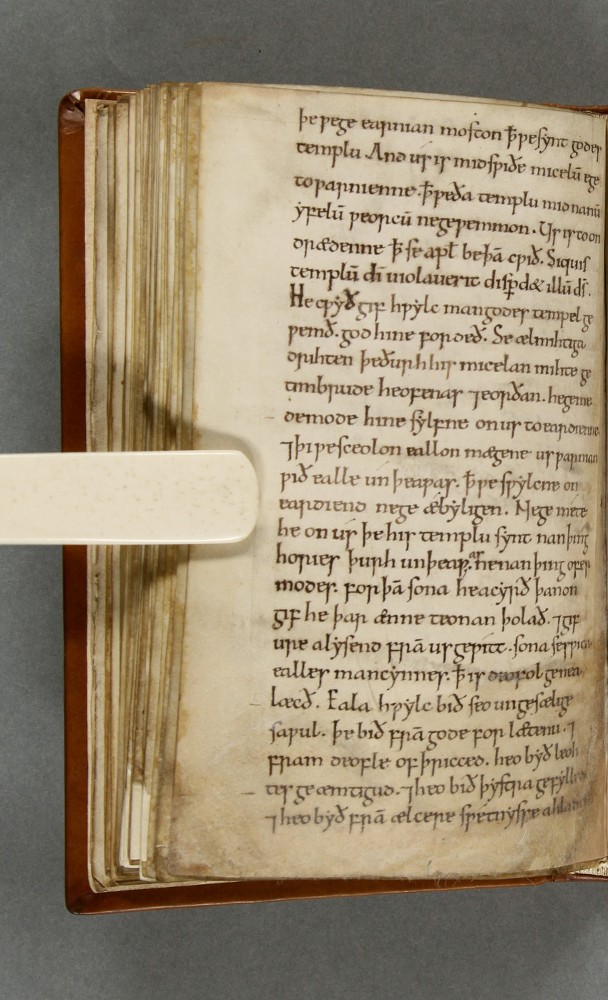 þe ƿege earnian moston ꝥ ƿe synt godes
templu. And us is mid sƿiðe micelū ege
to ƿarnienne. ꝥ ƿe ða templu mid nanū
yfelū ƿeorcū ne geƿemmon. Us is to on
drædenne ꝥ se apƚ be þā cƿið. Siquis
templū dī uiolauerit disꝑd& illū ds̄.
He cƿyð gif hƿylc man godes tempel ge
ƿemð. god hine fordeð. Se ælmihtiga
drihten þe ðurh his micelan mihte ge
timbrude heofenas ⁊ eorðan. he ge
demode hine sylfne on us to eardienne
⁊ þi ƿe sceolon eallon mægene us ƿarnian
ƿið ealle unþeaƿas. ꝥ ƿe sƿylcne on
eardiend ne ge æbyligen. Ne ge mete
he on us þe his templu synt nan þing
hories þurh unþeaƿas. ne nan þing ofer
modes. forþā sona he acyrð þanon
gif he þar ænne teonan þolað. ⁊ gif
ure alysend frā us geƿitt. sona
ealles mancynnes. ꝥ is deofol
læcð. Eala hƿylc bið seo ungesælige
saƿul. þe bið frā gode forlætenu. ⁊
fram deofle ofþricced. heo byð leoh
tes geæmtigud. ⁊ heo bið þystra gefylled
⁊ heo byð frā ælcere sƿetnysse